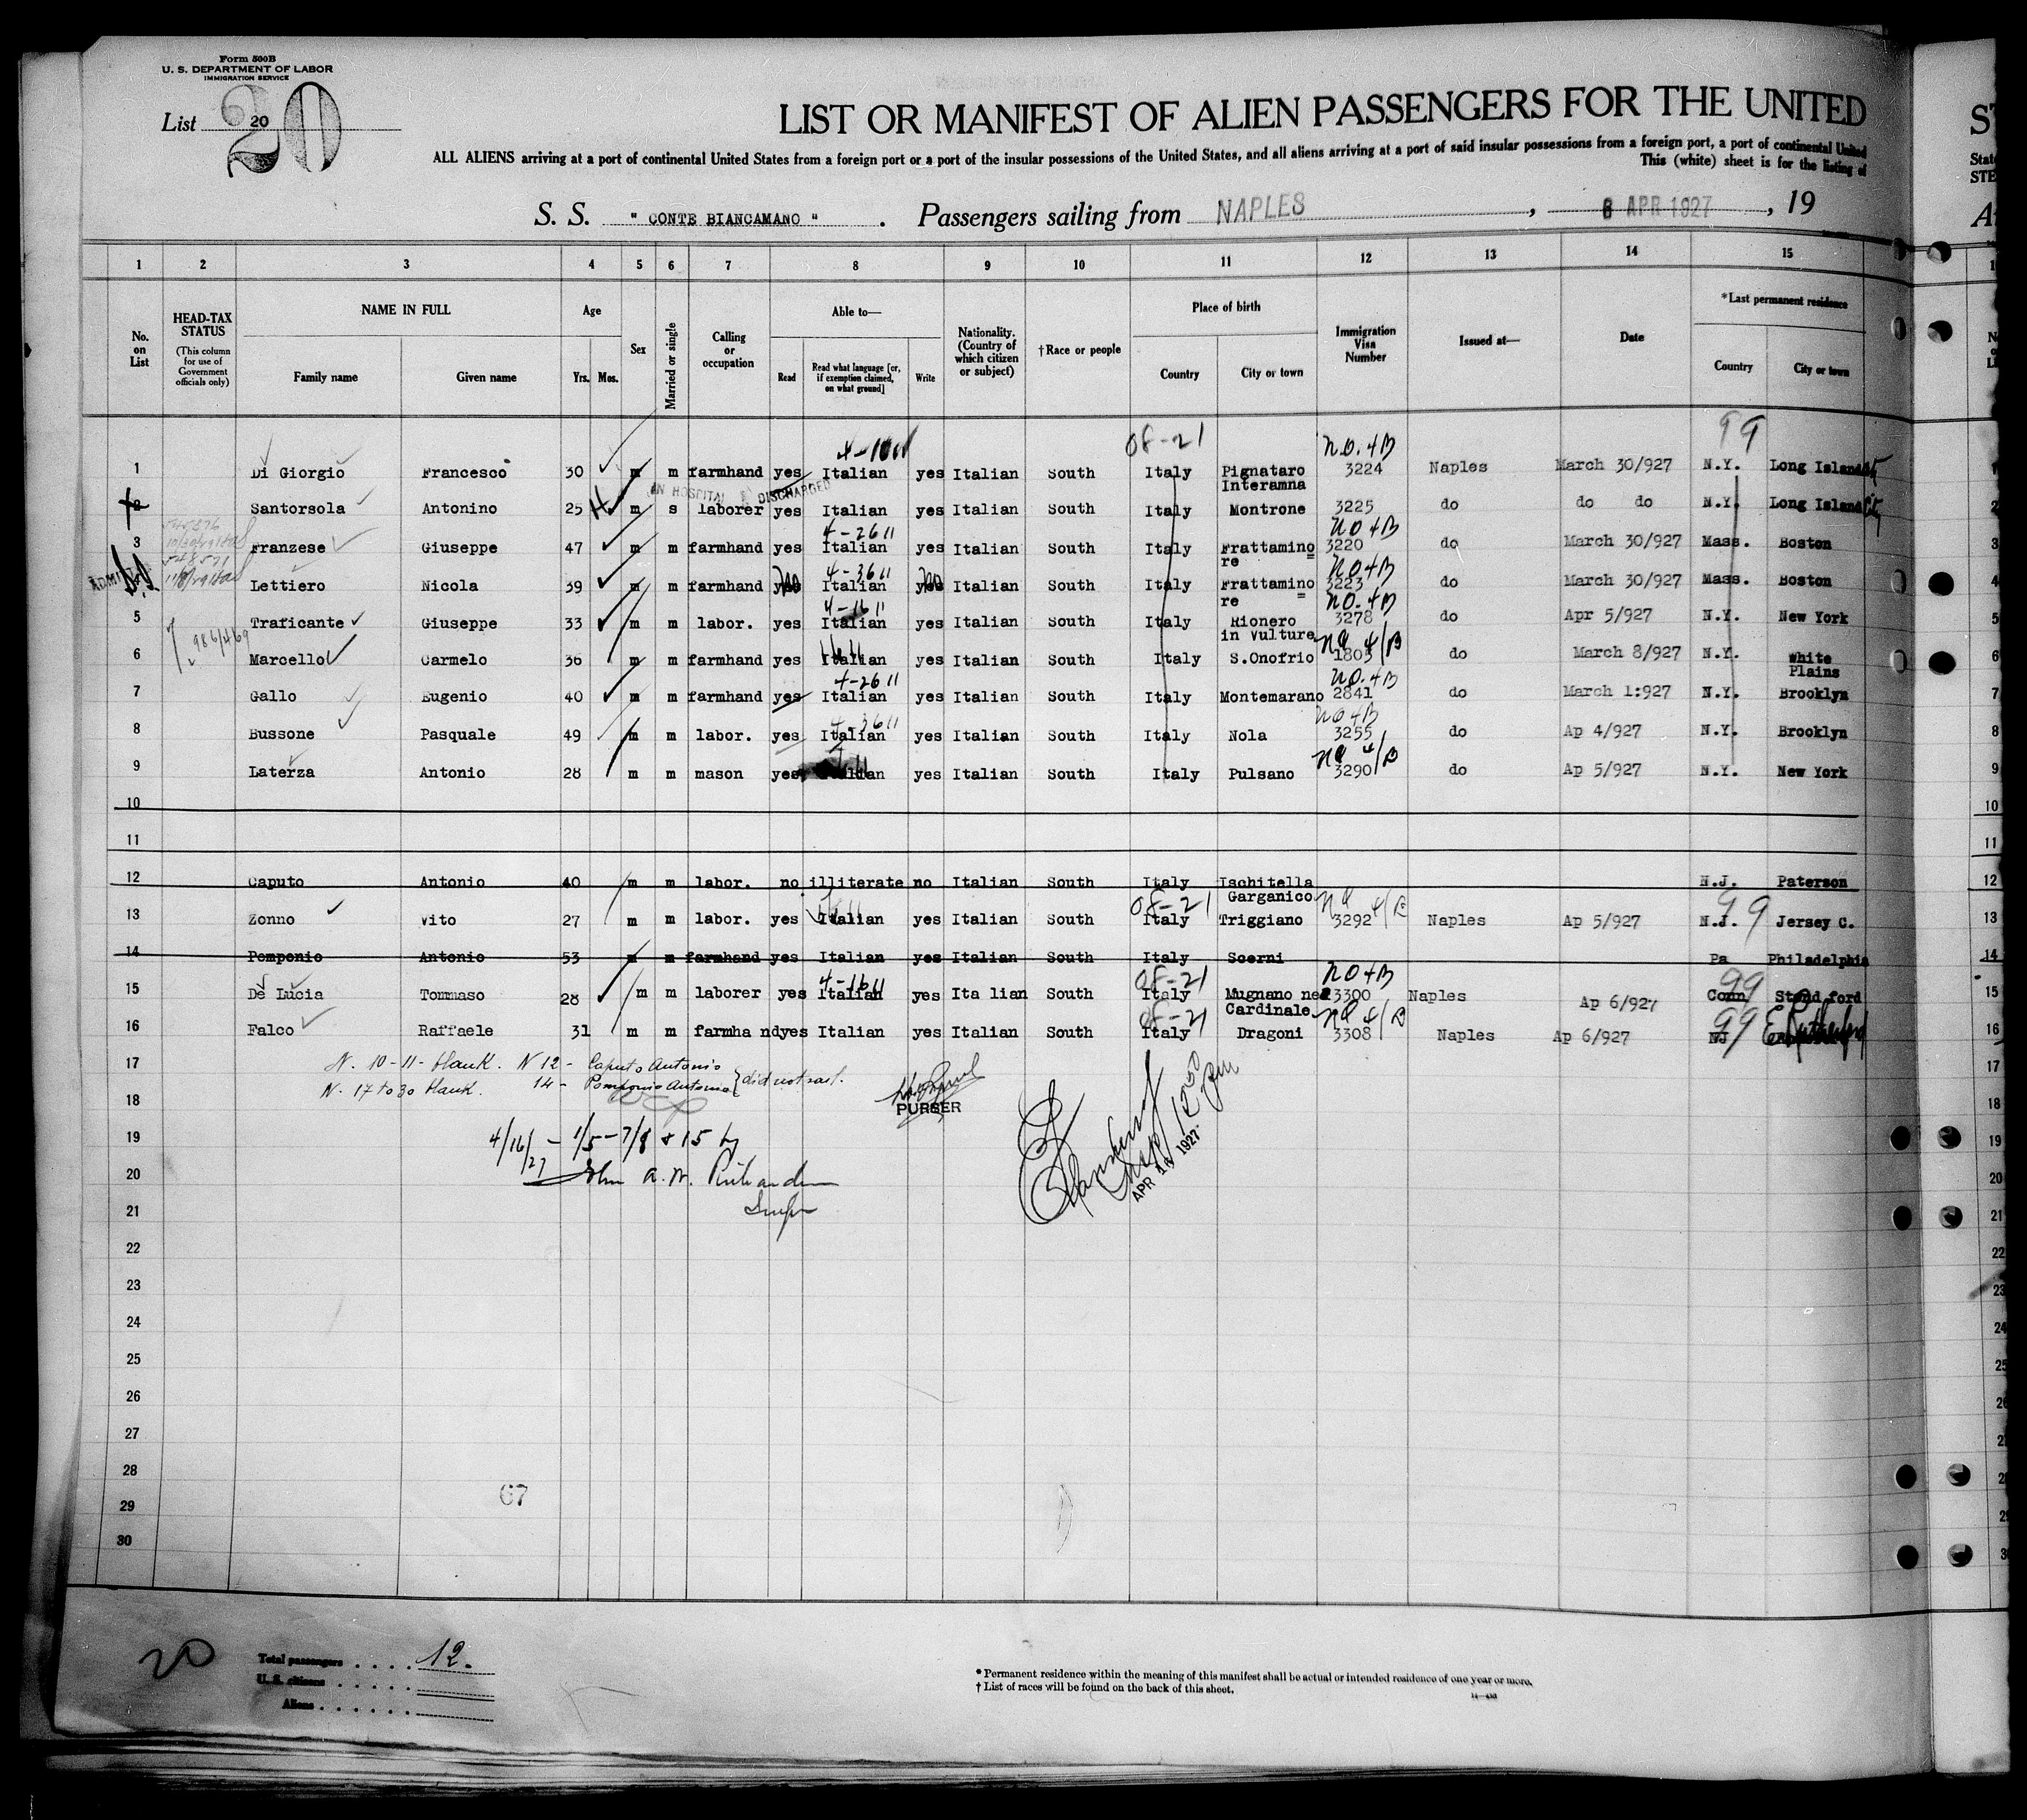 Form 500B
U. S. DEPARTMENT OF LABOR
IMMIGRATION SERVICE
List 20
20
LIST OR MANIFEST OF ALIEN PASSENGERS FOR THE UNITED
ALL ALIENS arriving at a port of continental United States from a foreign port or a port of the insular possessions of the United States, and all aliens arriving at a port of said insular possessions from a foreign port, a port of continental United
This (white) sheet is for the listing of
S. S. " CONTE BIANCAMANO ". Passengers sailing from NAPLES, 8 APR 1927, 19
1 2 3 4 5 6 7 8 9 10 11 12 13 14 15
No. on List
HEAD-TAX STATUS (This column for use of Government officials only)
NAME IN FULL Family name Given name
Age Yrs. Mos.
Sex
Married or single
Calling or occupation
Able to— Read Read what language [or, if exemption claimed, on what ground] Write
Nationality. (Country of which citizen or subject)
†Race or people
Place of birth Country City or town
Immigration Visa Number
Issued at—
Date
*Last permanent residence Country City or town
4-16 11 08-21 N.O.4B 99
1 Di Giorgio Francesco 30 m m farmhand yes Italian yes Italian South Italy Pignataro Interamna 3224 Naples March 30/927 N.Y. Long Island
IN HOSPITAL DISCHARGED
2 Santorsola Antonino 25 m s laborer yes Italian yes Italian South Italy Montrone 3225 do do do N.Y. Long Island City
4-26 11 NO 4B
3 Franzese Giuseppe 47 m m farmhand yes Italian yes Italian South Italy Frattamino= re 3220 do March 30/927 Mass. Boston
4-36 11 NO 4B
4 Lettiero Nicola 39 m m farmhand yes No Italian yes No Italian South Italy Frattamino= re 3223 do March 30/927 Mass. Boston
4-16 11 NO. 4B
5 Traficante Giuseppe 33 m m labor. yes Italian yes Italian South Italy Rionero in Vulture 3278 do Apr 5/927 N.Y. New York
6 Marcello Carmelo 36 m m farmhand yes Italian yes Italian South Italy S.Onofrio 1803 do March 8/927 N.Y. White Plains
4-26 11 NO. 4B
7 Gallo Eugenio 40 m m farmhand yes Italian yes Italian South Italy Montemarano 2841 do March 1:927 N.Y. Brooklyn
4-36 11 NO 4B
8 Bussone Pasquale 49 m m labor. yes Italian yes Italian South Italy Nola 3255 do Ap 4/927 N.Y. Brooklyn
9 Laterza Antonio 28 m m mason yes Italian yes Italian South Italy Pulsano 3290 do Ap 5/927 N.Y. New York
10
11
12 Caputo Antonio 40 m m labor. no illiterate no Italian South Italy Ischitella Garganico N.J. Paterson
08-21 99
13 Zonno Vito 27 m m labor. yes Italian yes Italian South Italy Triggiano 3292 Naples Ap 5/927 N.J. Jersey C.
14 Pomponio Antonio 53 m m farmhand yes Italian yes Italian South Italy Scerni Pa Philadelphia
4-16 11 08-21 NO 4B 99
15 De Lucia Tommaso 28 m m laborer yes Italian yes Ita lian South Italy Mugnano nel Cardinale 3300 Naples Ap 6/927 Conn Stand ford
08-21 99
16 Falco Raffaele 31 m m farmha nd yes Italian yes Italian South Italy Dragoni 3308 Naples Ap 6/927 NJ E Rutherford
17 N. 10-11- blank. N 12- Caputo Antonio
N. 17 to 30 blank. 14- Pomponio Antonio } did not sail.
18
PURSER
19 4/16/27 - 1/5-7/8 & 15 by
20 John A. W. Richardson
21 Insp
APR 16 1927
22
23
24
25
26
27
28
29
67
30
20
Total passengers . . . . 12.
U. S. citizens . . . . .
Aliens . . . . . .
* Permanent residence within the meaning of this manifest shall be actual or intended residence of one year or more.
† List of races will be found on the back of this sheet.